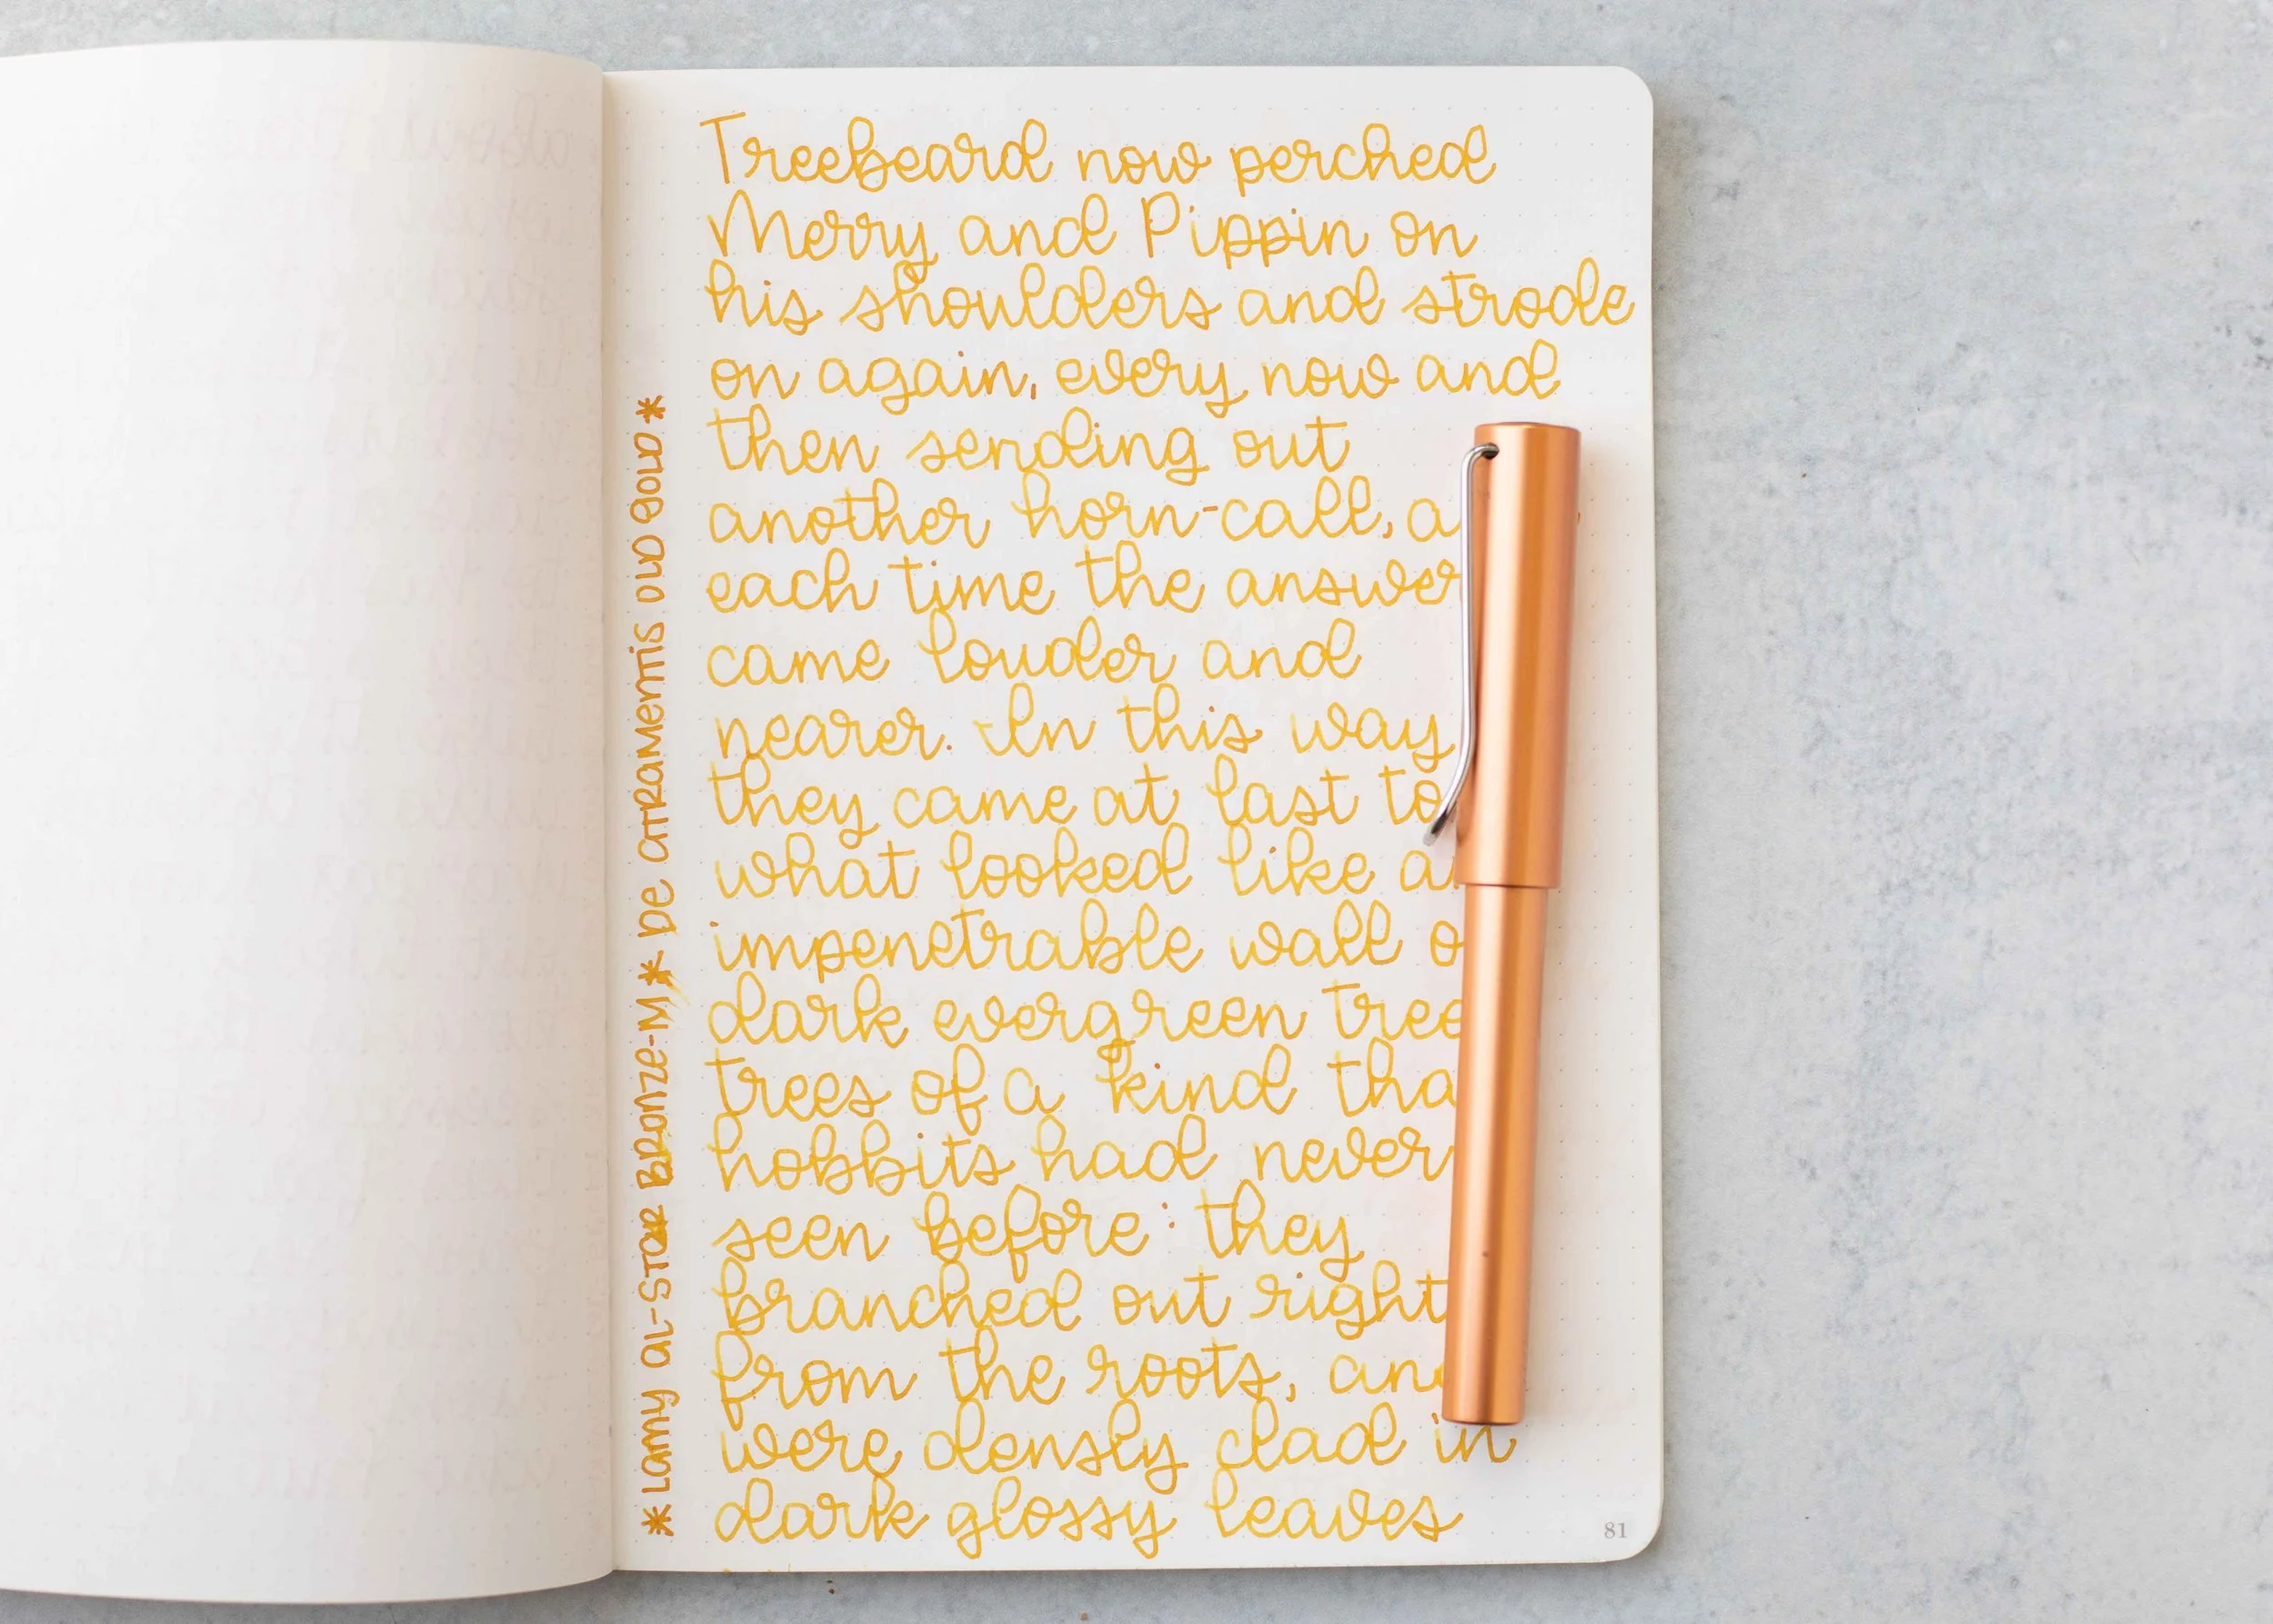 Treebeard now perched
Merry and Pippin on
his shoulders and strode
on again, every now and
then sending out
another horn-call,
each time the answer
came louder and
nearer. In this way
they came at last to
what looked like
impenetrable wall
dark evergreen
trees of a kind
hobbits had never
seen before: they
branched out right
from the roots,
were densly clad in
dark glossy leaves
*Lamy AL-STAR BRONZE-M* DE ATRAMENTIS OLD GOLD*
81